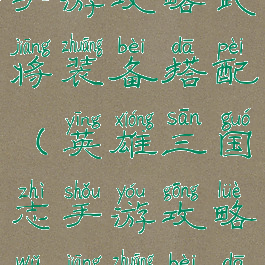 游攻略武
jiāng zhuāng bèi dā pèi
将装备搭配
yīng xióng sān guó
（英雄三国
zhì shǒu yóu gōng lüè
志手游攻略
wǔ jiāng zhuāng bèi dā